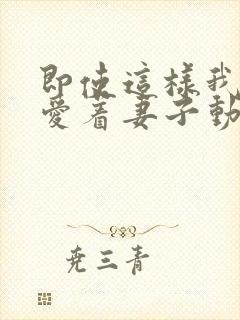 即使這樣我
愛着妻子動
堯三青